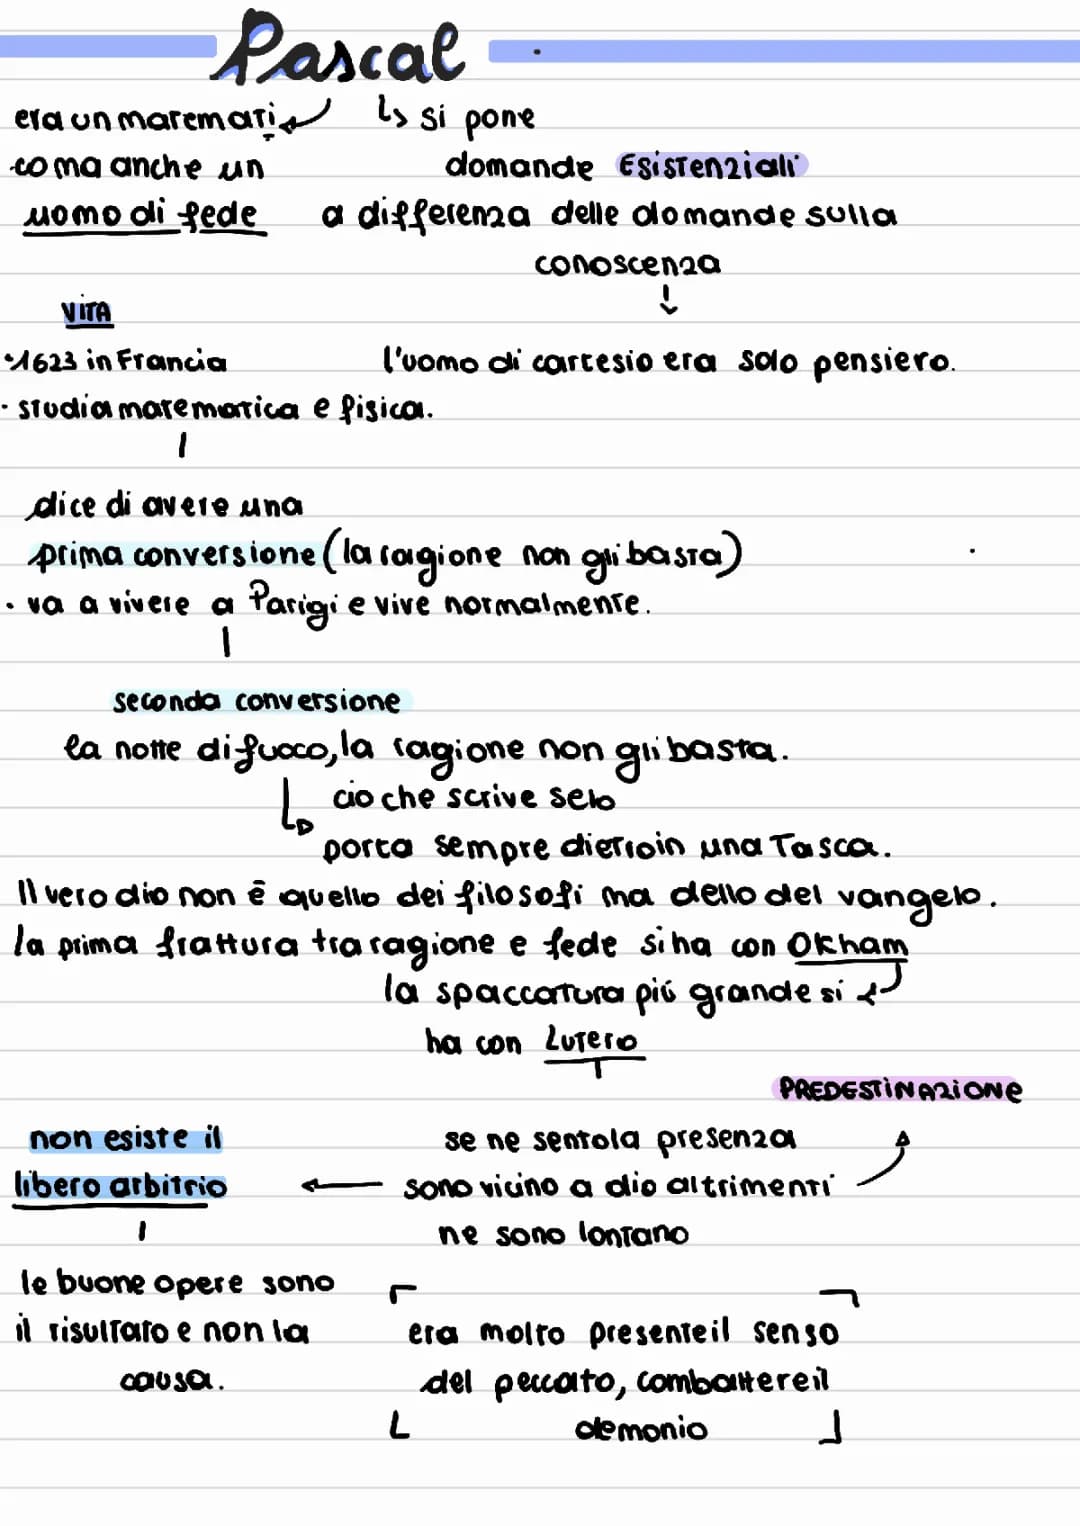 Pascal
era un matemati
↳ si pone
co ma anche un
domande Esistenziali
uomo di fede
a differenza delle domande sulla
conoscenza
VITA
l'uomo di cartesio era solo pensiero.
•1623 in Francia
• studia matematica e fisica.
dice di avere una
prima conversione (la ragione non gli basta)
• va a vivere a Parigi e vive normalmente.
seconda conversione
la notte di fuoco, la ragione non gli basta.
cio che scrive selo
porta sempre dietroin una Tasca.
Il vero dio non è quello dei filosofi ma dello del vangelo.
la prima frattura tra ragione e fede si ha con Okham
la spaccatura più grande si
ha con Lutero
PREDESTINAZIONE
non esiste il
libero arbitrio
se ne sentola presenza
sono vicino a dio altrimenti
ne sono lontano
le buone opere sono
il risultato e non la
causa.
era molto presenteil senso
del peccato, combattereil
demonio